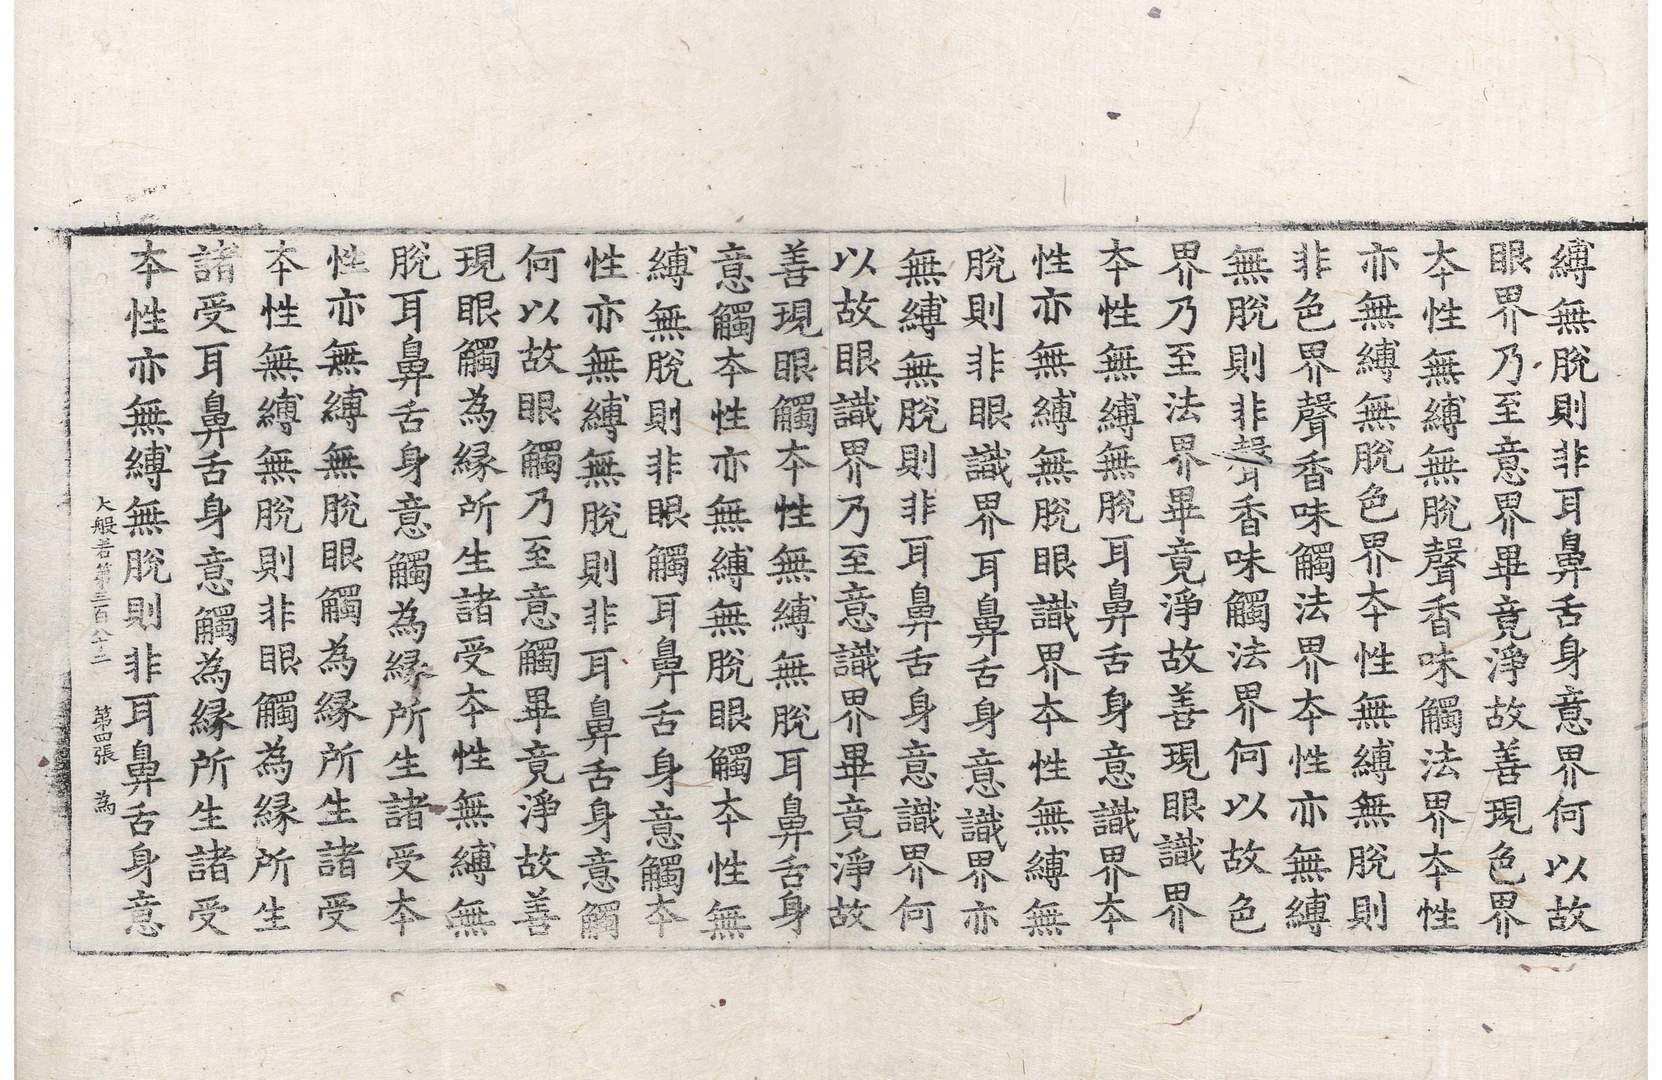 縛無脫則非耳鼻舌身意界何以故
眼界乃至意界畢竟淨故善現色界
本性無縛無脫聲香味觸法界本性
亦無縛無脫色界本性無縛無脫則
非色界聲香味觸法界本性亦無縛
無脫則非聲香味觸法界何以故色
界乃至法界畢竟淨故善現眼識界
本性無縛無脫耳鼻舌身意識界本
性亦無縛無脫眼識界本性無縛無
脫則非眼識界耳鼻舌身意識界亦
無縛無脫則非耳鼻舌身意識界何
以故眼識界乃至意識界畢竟淨故
善現眼觸本性無縛無脫耳鼻舌身
意觸本性亦無縛無脫眼觸本性無
縛無脫則非眼觸耳鼻舌身意觸本
性亦無縛無脫則非耳鼻舌身意觸
何以故眼觸乃至意觸畢竟淨故善
現眼觸為緣所生諸受本性無縛無
脫耳鼻舌身意觸為緣所生諸受本
性亦無縛無脫眼觸為緣所生諸受
本性無縛無脫則非眼觸為緣所生
諸受耳鼻舌身意觸為緣所生諸受
本性亦無縛無脫則非耳鼻舌身意
大般若第三百八十二 第四張 為